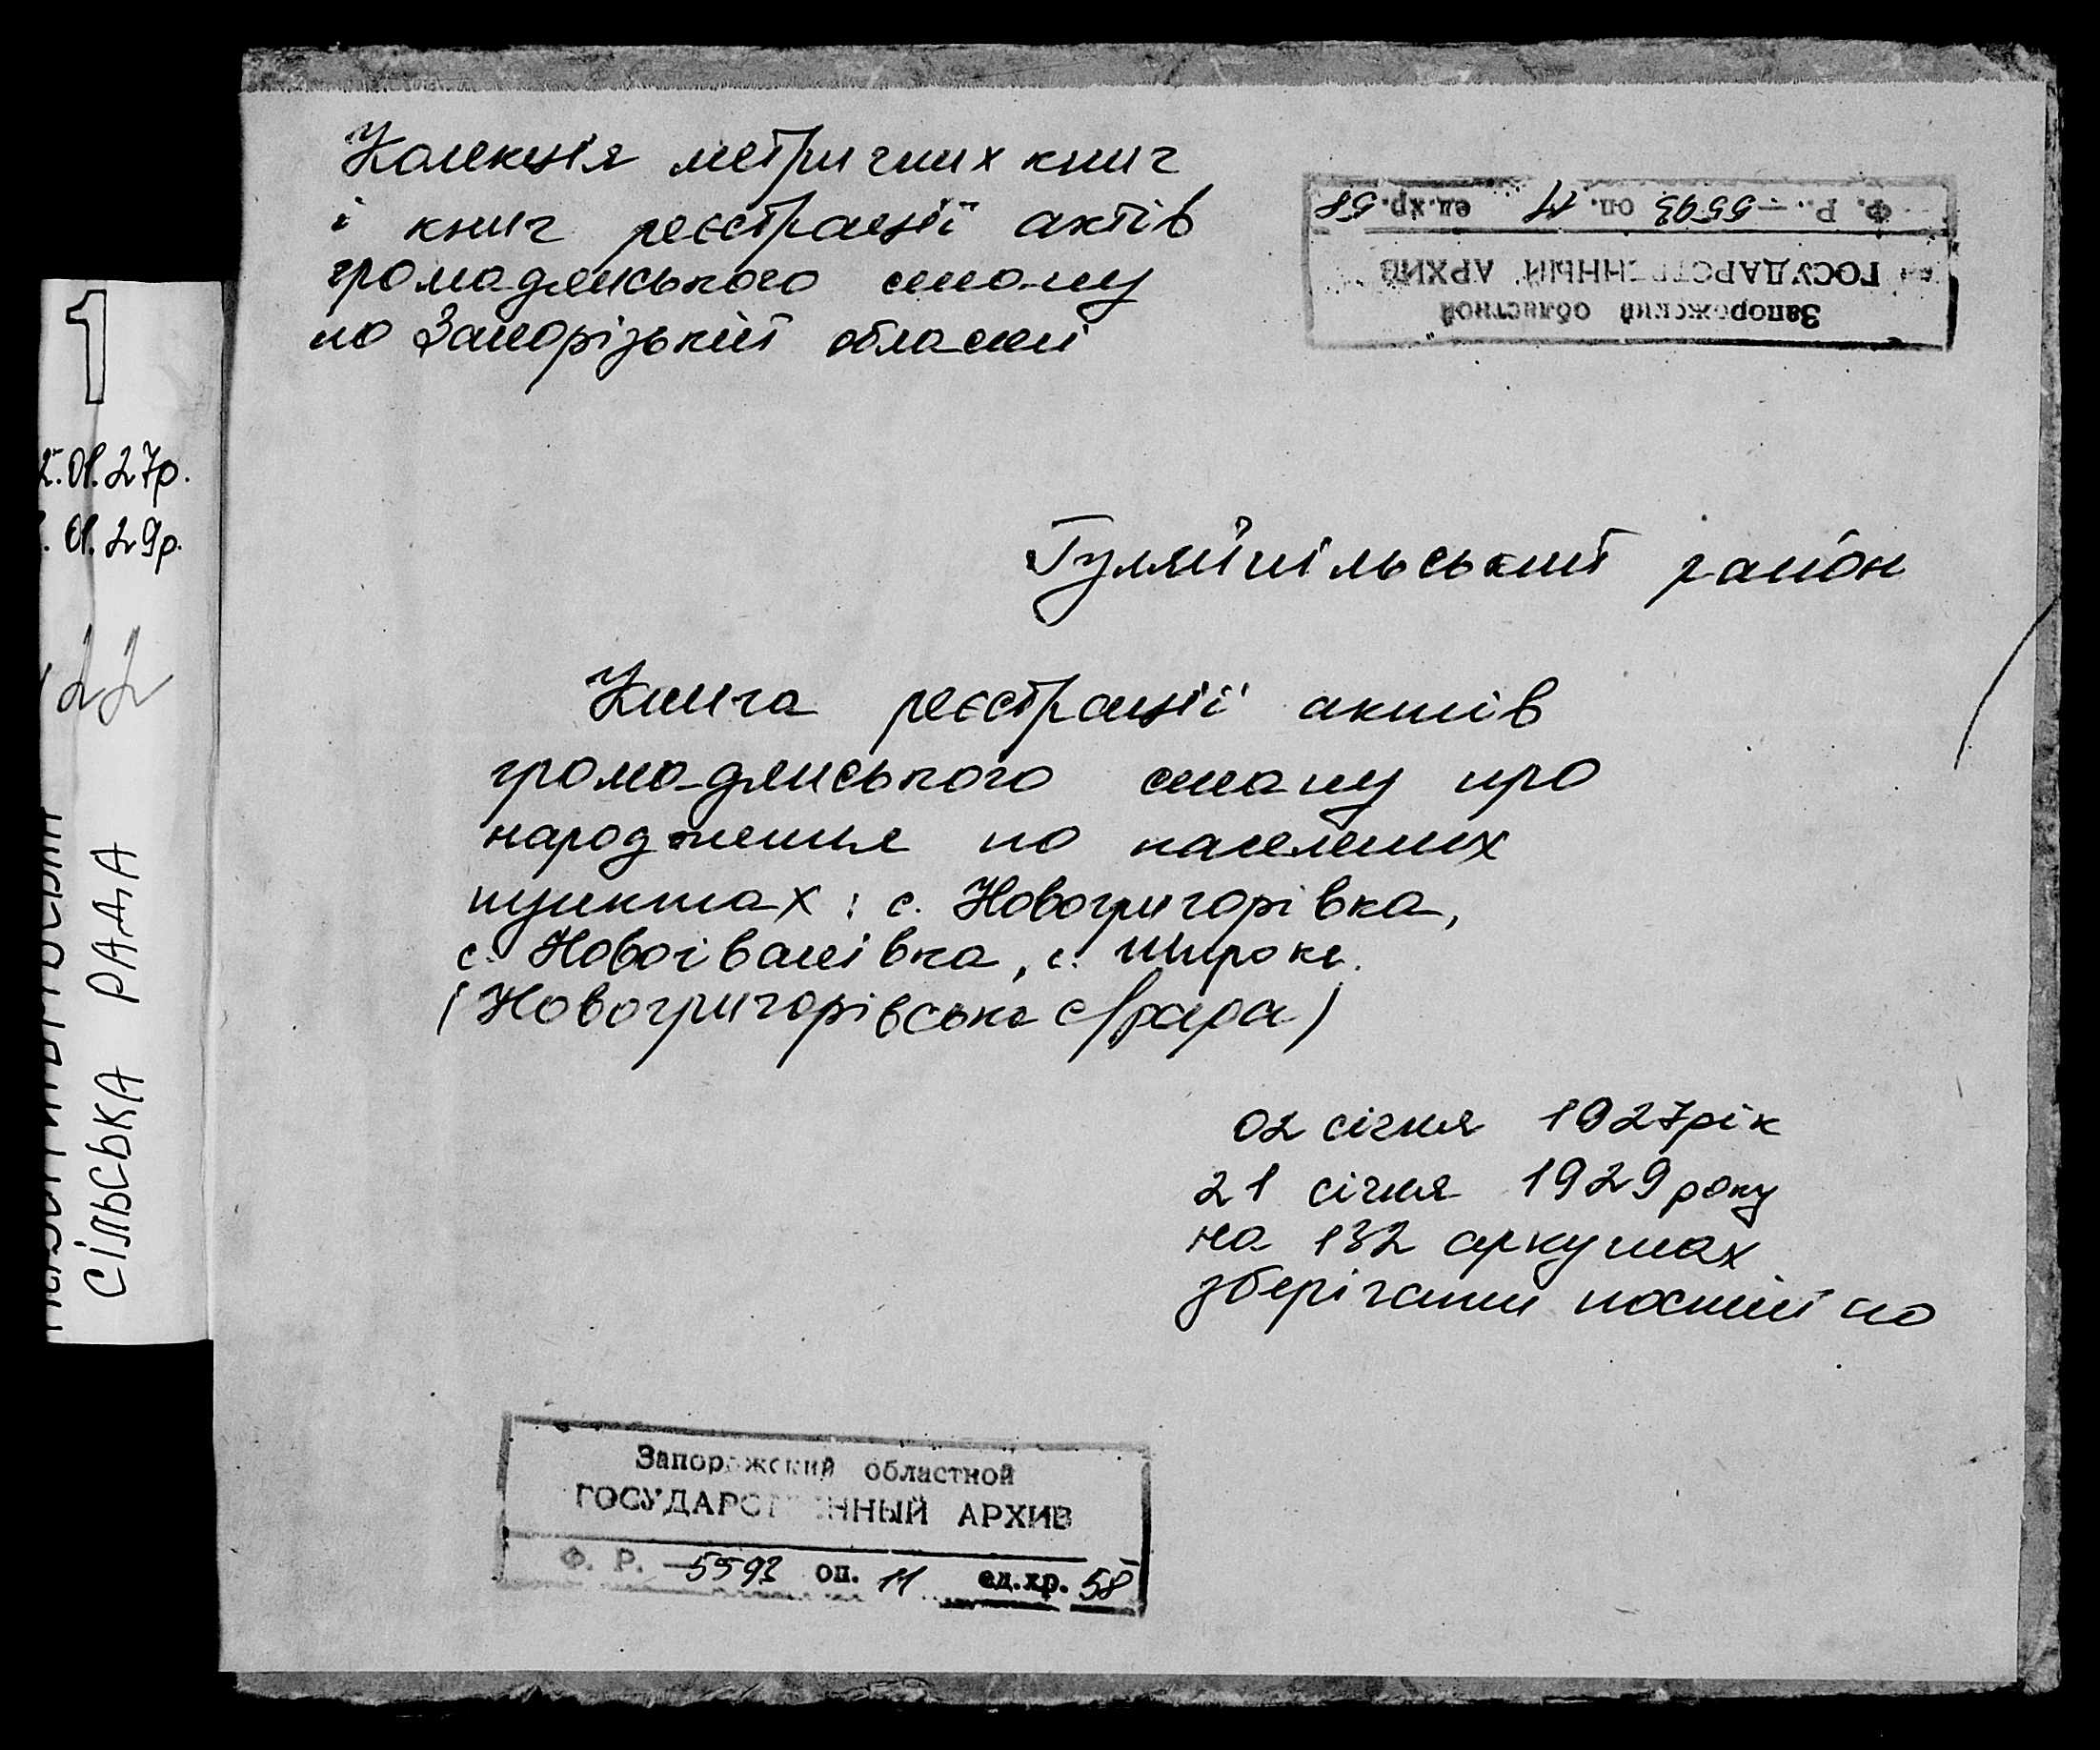 Колекція метричних книг
і книг реєстрації актів
громадянського стану
по Запорізькій області
Ф. Р. — 5593 оп. 11 ед.хр. 58
ГОСУДАРСТВЕННЫЙ АРХИВ
Запорожский областной
1
.01.27р.
.01.29р.
СІЛЬСЬКА РАДА
Гуляйпільський район
Книга реєстрації актів
громадянського стану про
народження по населених
пунктах: с. Новогригорівка,
с. Новоіванівка, с. Широке.
(Новогригорівська с/рада)
02 січня 1927рік
21 січня 1929року
на 132 аркушах
зберігати постійно
Запорожский областной
ГОСУДАРСТВЕННЫЙ АРХИВ
Ф. Р. — 5593 оп. 11 ед.хр. 58